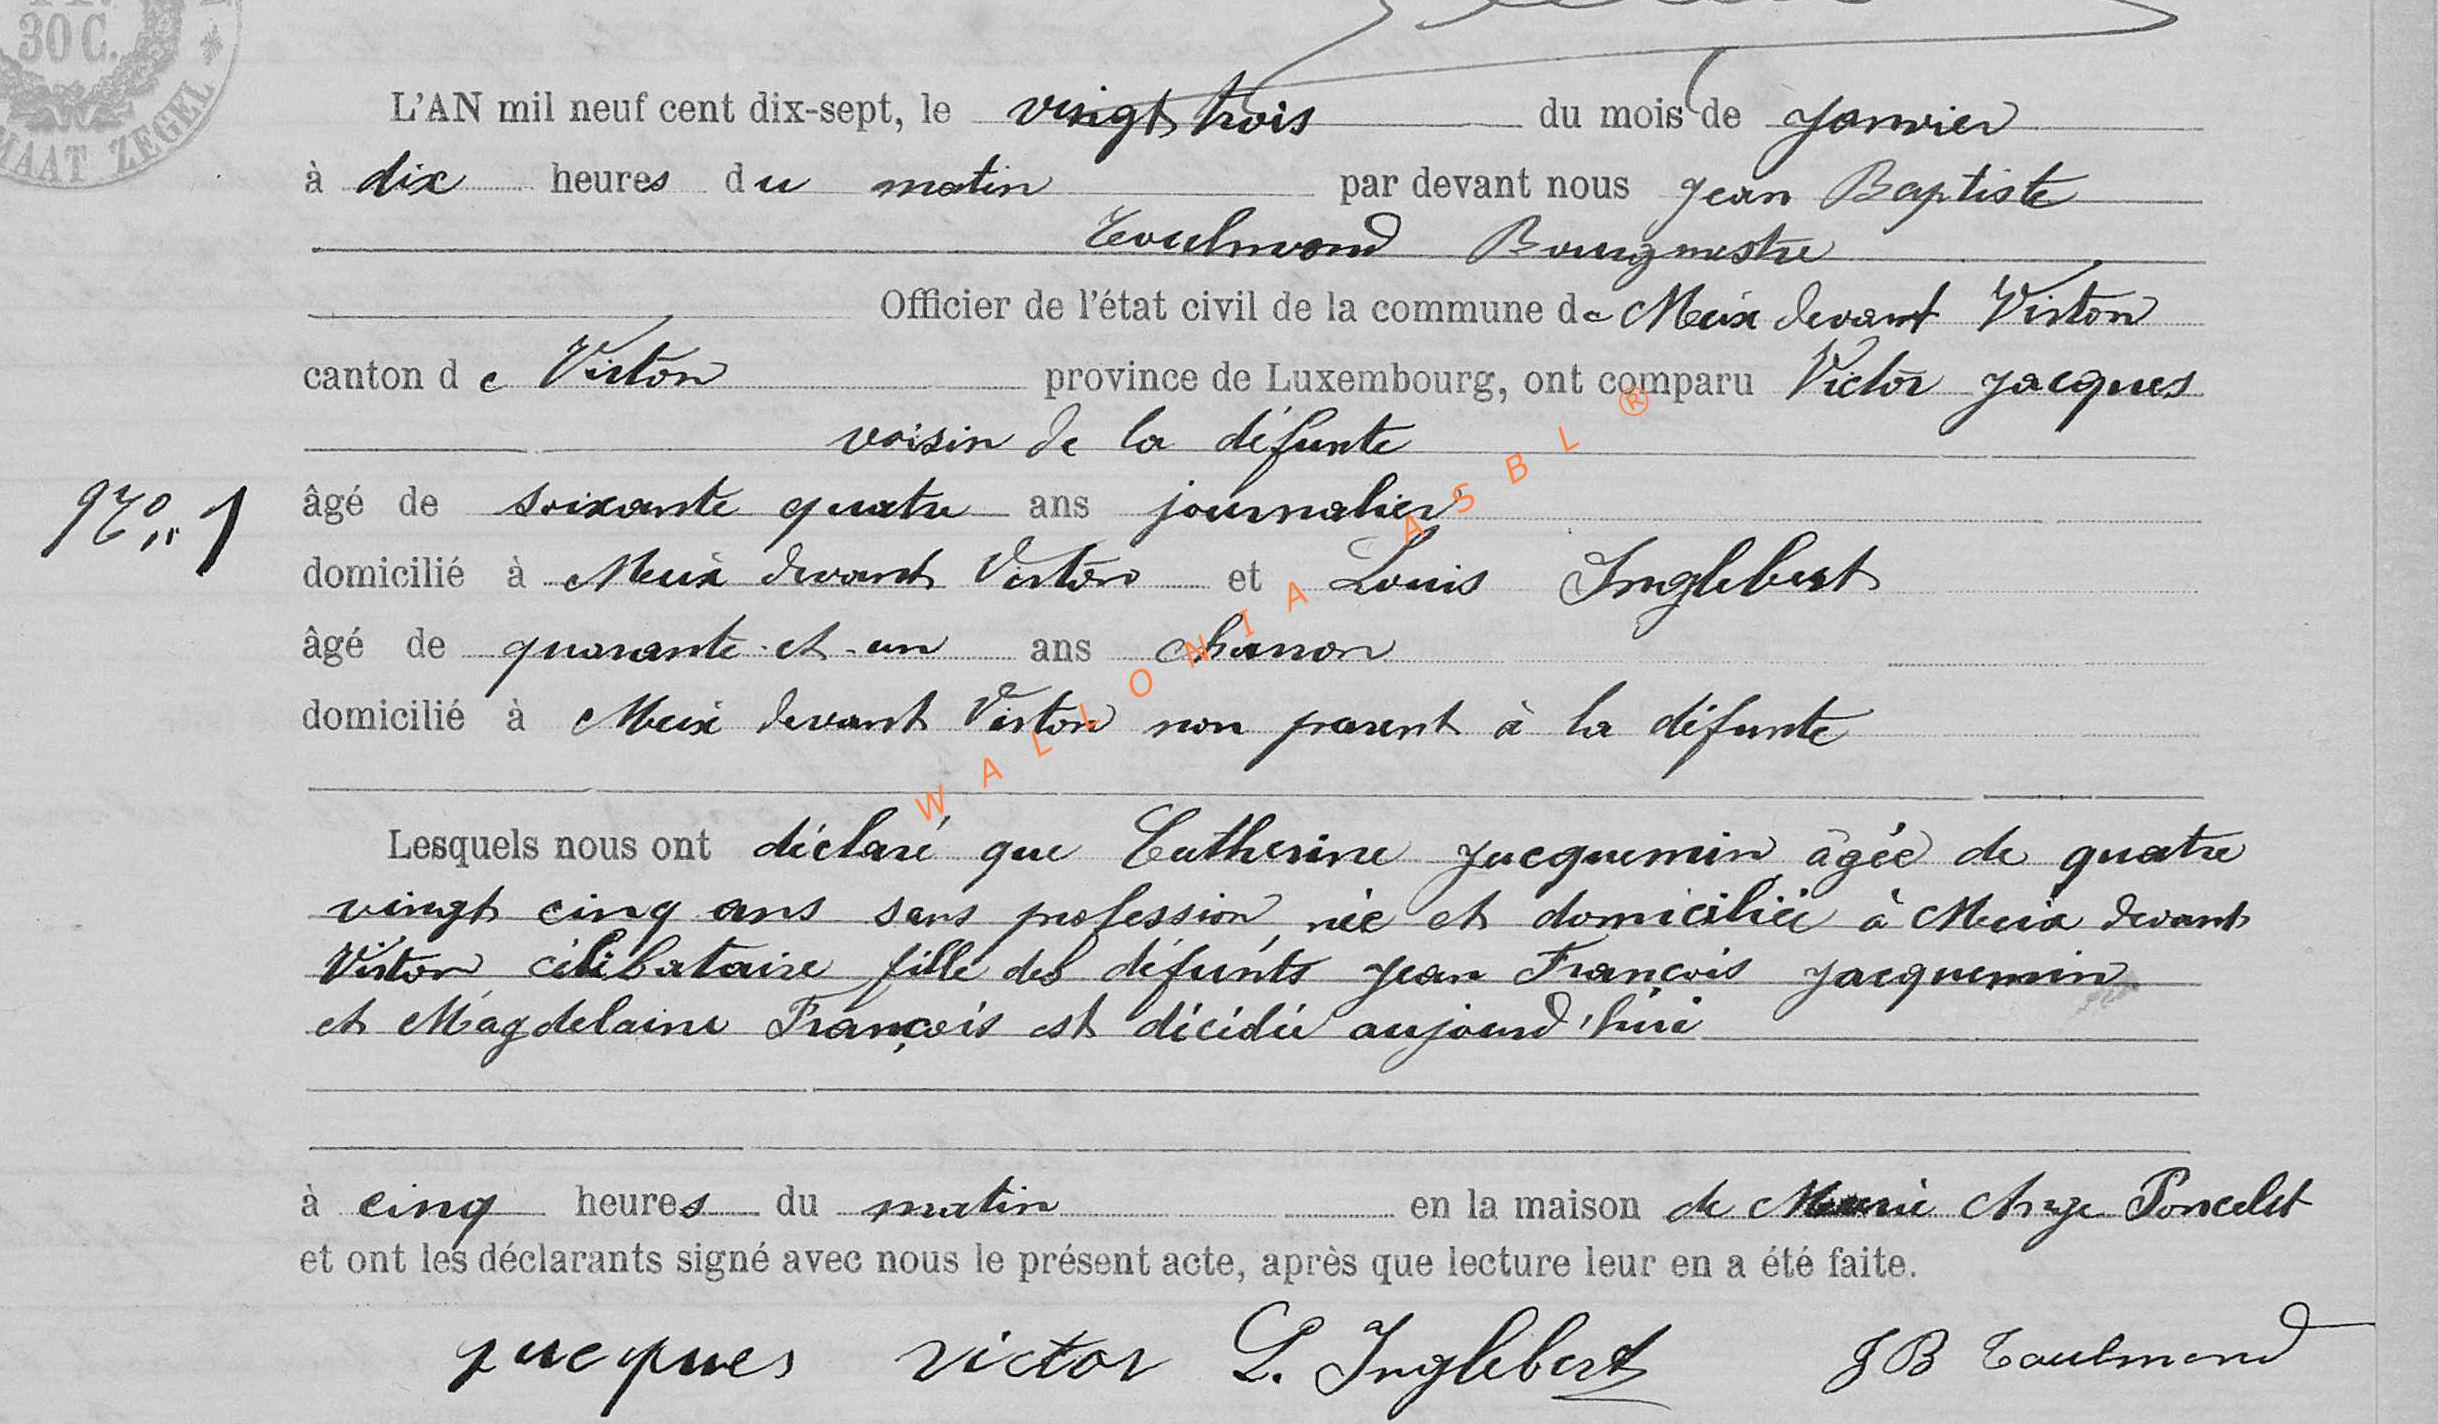 30 C.
MAAT ZEGEL *
L'AN mil neuf cent dix-sept, le vingt trois du mois de Janvier
à dix heures du matin par devant nous Jean Baptiste
Toulmond Bourgmestre
Officier de l'état civil de la commune de Meix devant Virton
canton de Virton province de Luxembourg, ont comparu Victor Jacques
voisin de la défunte
N° 1
âgé de soixante quatre ans journalier
domicilié à Meix devant Virton et Louis Inglebert
âgé de quarante-et-un ans
domicilié à Meix devant Virton non parent à la défunte
WALLONIA ASBL ®
Lesquels nous ont déclaré que Catherine Jacquemin âgée de quatre
vingt cinq ans sans profession, née et domiciliée à Meix devant
Virton célibataire fille des défunts Jean François Jacquemin
et Magdelaine François est décédée aujourd'hui
à cinq heures du matin en la maison de Marie Ange Poncelet
et ont les déclarants signé avec nous le présent acte, après que lecture leur en a été faite.
Jacques Victor L. Inglebert J B Toulmond